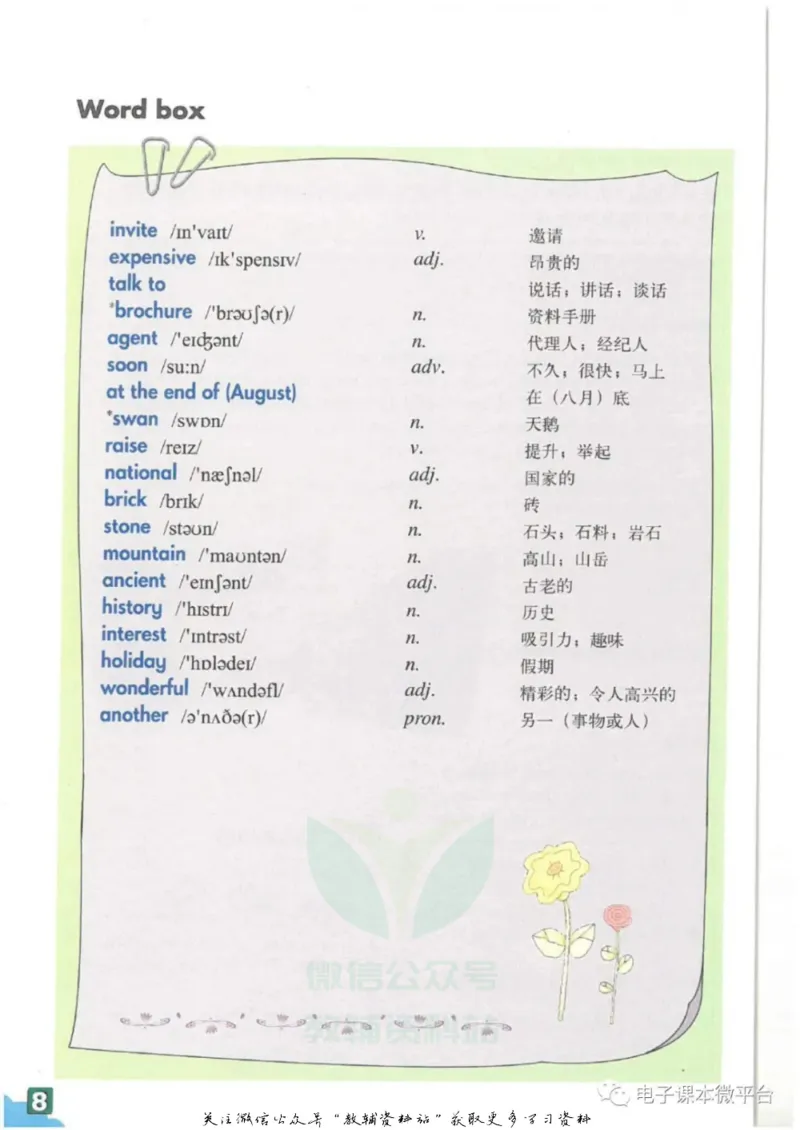 Word box
invite /ɪn'vaɪt/ v. 邀请
expensive /ɪk'spensɪv/ adj. 昂贵的
talk to 说话；讲话；谈话
*brochure /'brəʊʃə(r)/ n. 资料手册
agent /'eɪʤənt/ n. 代理人；经纪人
soon /su:n/ adv. 不久；很快；马上
at the end of (August) 在（八月）底
*swan /swɒn/ n. 天鹅
raise /reɪz/ v. 提升；举起
national /'næʃnəl/ adj. 国家的
brick /brɪk/ n. 砖
stone /stəʊn/ n. 石头；石料；岩石
mountain /'maʊntən/ n. 高山；山岳
ancient /'eɪnʃənt/ adj. 古老的
history /'hɪstrɪ/ n. 历史
interest /'ɪntrəst/ n. 吸引力；趣味
holiday /'hɒlədeɪ/ n. 假期
wonderful /'wʌndəfl/ adj. 精彩的；令人高兴的
another /ə'nʌðə(r)/ pron. 另一（事物或人）
微信公众号
教辅资料站
8
电子课本微平台
关注微信公众号“教辅资料站”获取更多学习资料